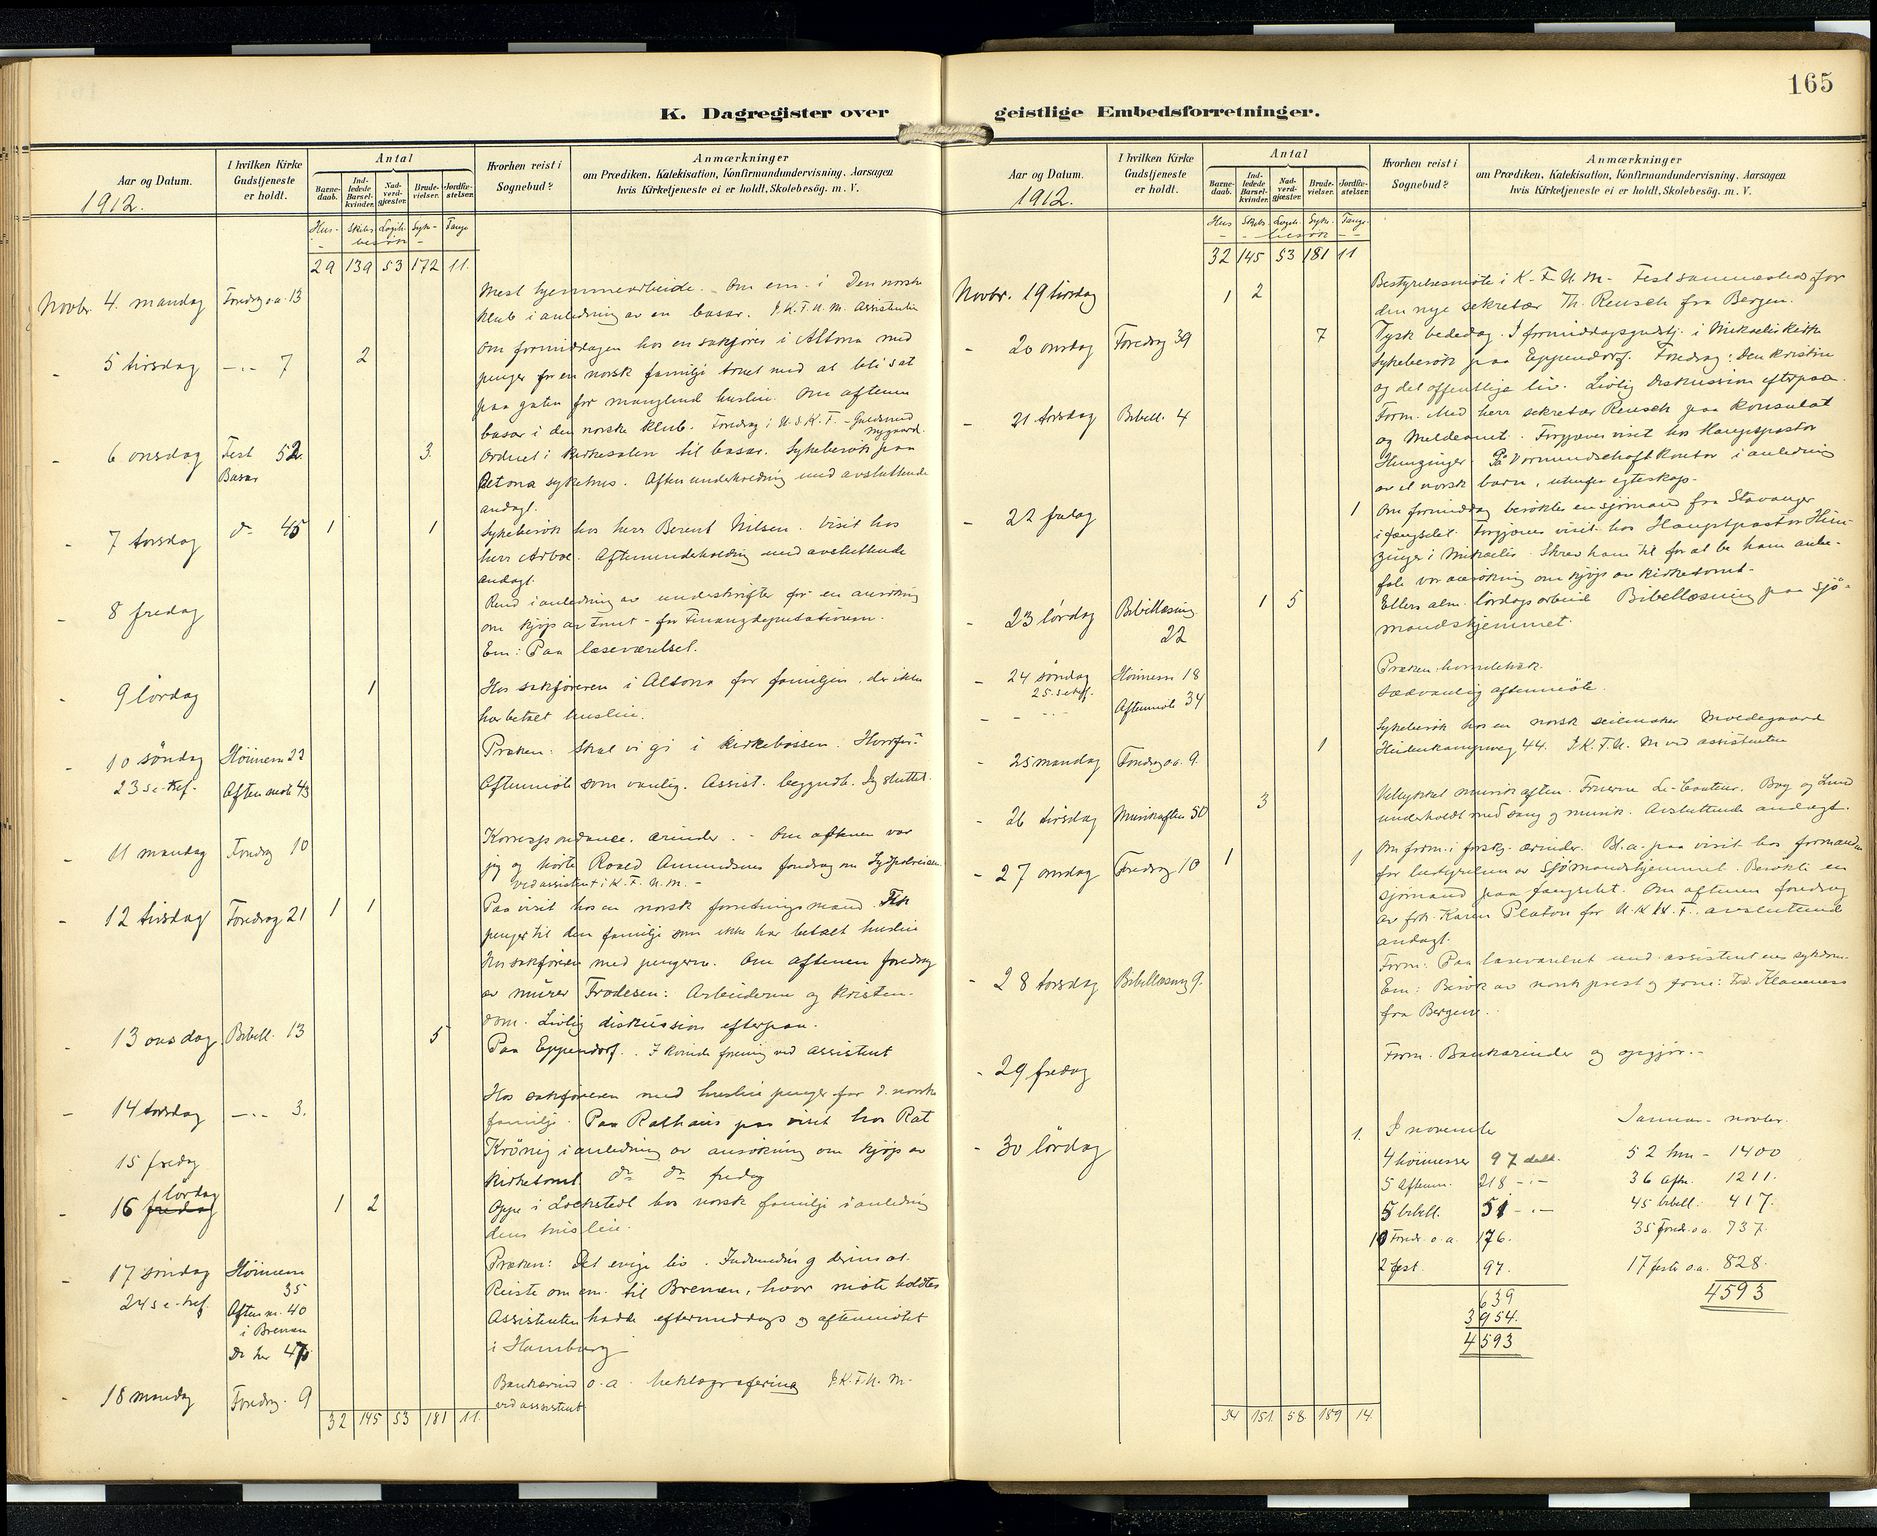 165
K. Dagregister over geistlige Embedsforretninger.
Aar og Datum.
1912.
I hvilken Kirke Gudstjeneste er holdt.
Antal
Barne-daab.
Ind-ledede Barsel-kvinder.
Nad-verd-gjæster.
Brude-vielser.
Jordfæ-stelser.
Hvorhen reist i Sognebud?
Anmærkninger
om Prædiken, Katekisation, Konfirmandundervisning, Aarsagen
hvis Kirketjeneste ei er holdt, Skolebesög. m. V.
Hus- Skibs Logih- Syke- Fange
besøk
29 139 53 172 11.
Novbr. 4. mandag Foredrag o.a. 13
Mest hjemmearbeide. - Om em. i Den norske
klub i anledning av en basar. I K.F.U.M. Assistenten
- 5 tirsdag -"- 7 2
Om formiddagen hos en sakfører i Altona med
penger for en norsk familje truet med at bli sat
paa gaten for manglend husleie. Om aftenen
basar i den norske klub. Foredrag i U.S.K.F. - Guldsmed
Nygaard.
- 6 onsdag Fest 52 3.
Basar
Ordnet i kirkesalen til basar. Sykebesøk paa
Altona sykehus. Aftenunderholdning med avsluttende
andagt.
- 7 torsdag do 45 1 1
Sykebesøk hos herr Berent Nilsen. Visit hos
herr Arboe. Aftenunderholdning med avsluttende
andagt.
- 8 fredag
Rend i anledning av underskrifter for en ansøkning
om kjøp av tomt - for Finanzdeputationen.
Em: Paa læseværelset.
- 9 lördag 1
Hos sakføreren i Altona for familjen, der ikke
har betalt husleie.
- 10 söndag Höimesse 22
Præken: Skal vi gi i kirkebøssen. Hvorfor?
23 s. e. tref. Aftenmøte 43
Aftenmøte som vanlig. Assist. begyndte. Jeg sluttet.
- 11 mandag Foredrag 10
Korrespondance, ærinder. - Om aftenen var
jeg og hørte Roald Amundsens foredrag om Sydpolreisen
ved assistent i K.F.U.M. -
- 12 tirsdag Foredrag 21 1 1
Paa visit hos en norsk forretningsmand. Fik
penger til den familje som ikke har betalt husleie
Hos sakføreren med pengene. Om aftenen foredrag
av murer Frodesen: Arbeiderne og kristen-
dom. Livlig diskussion efterpaa.
- 13 onsdag Bibell. 13 5
Paa Eppendorf. I kvindeforening ved assistent
- 14 torsdag -"- 3.
Hos sakføreren med husleiepenger for d. norske
familje. Paa Rathaus paa visit hos Rat
Krönig i anledning av ansøkning om kjøp av
15 fredag
kirketomt. do do fredag
- 16 fredag lördag 1 2
Oppe i Lockstedt hos norsk familje i anledning
dens husleie.
- 17 söndag Höimesse 35
24 s. e. tref. Aftenm. 40
i Bremen
do her 47
Præken: Det evige liv.
Reiste om em. til Bremen, hvor møte holdtes
Assistenten hadde eftermiddags og aftenmötet
i Hamburg
- 18 mandag Foredrag. 9
Bankærind o.a. hektografering I K.F.U.M.
ved assistent.
32 145 53 181 11.
Aar og Datum.
1912.
I hvilken Kirke Gudstjeneste er holdt.
Antal
Barne-daab.
Ind-ledede Barsel-kvinder.
Nad-verd-gjæster.
Brude-vielser.
Jordfæ-stelser.
Hvorhen reist i Sognebud?
Anmærkninger
om Prædiken, Katekisation, Konfirmandundervisning, Aarsagen
hvis Kirketjeneste ei er holdt, Skolebesög. m. V.
Hus Skibs Logih- Syke- Fange-
besøk
32 145 53 181 11
Novbr. 19 tirsdag 1 2
Bestyrelsesmöte i K.F.U.M. Fest sammesteds for
den nye sekretær Th. Reusch fra Bergen.
- 20 onsdag Foredrag 39 7
Tysk bededag. I formiddagsgudstj. i Mikaeliskirke
Sykebesøk paa Eppendorf. Foredrag: Den kristne
og det offentlige liv. Livlig diskussion efterpaa.
- 21 torsdag Bibell. 4
Form. Med herr sekretær Reusch paa konsulat
og Meldeamt. Forgjæves visit hos Hauptpastor
Hunzinger. På Vormundschaftkontor i anledning
av et norsk barn, utenfor egteskap.
- 22 fredag 1
Om formiddag besøktes en sjømand fra Stavanger
i fængselet. Forgjæves visit hos Hauptpastor Hun-
zinger i Mikaelis. Skrev ham til for at be ham anbe-
fale vor ansøkning om kjøp av kirketomt.
- 23 lördag Bibellæsning 22 1 5
Ellers alm. lördagsarbeid. Bibellæsning paa Sjö-
mandshjemmet.
- 24 søndag Höimesse 18
25. s. e. tref.
Præken.
- -"- Aftenmöte 34
Sædvanlig aftenmöte.
- 25 mandag Foredrag o.a. 9. 1
Sykebesøk hos en norsk seilmaker Moedegaard
Heidenkampsweg 44. I K.F.U.M. ved assistenten
- 26 tirsdag Musikaften 50 3
Vellykket musikaften. Fruerne Le-Couteur, Boy og Lund
underholdt med sang og musik. Avsluttende andagt.
- 27 onsdag Foredrag 10 1 1
Om form. i forskj. ærinder. Bl.a. paa visit hos formanden
for bestyrelsen av Sjømandshjemmet. Besøkte en
sjømand paa fængselet. Om aftenen foredrag
av frk. Karen Platou for U.K.F. avsluttend
andagt.
- 28 torsdag Bibellæsning 9.
Form: Paa læseværelset med assistentens sykdom.
Em: Besøk av norsk prest og frue: Klaveness
fra Bergen.
- 29 fredag
Form. Bankærinder og opgjør. -
- 30 lördag 1.
I november
4 höimesser 97 delt.
5 Aftenm. 218 -"-
5 bibell. 51 -"-
10 Foredr. o.a. 176.
2 fest. 97.
639
3954.
4593
Januar - novbr.
52 hm - 1400
36 aftn. 1211.
45 bibell. 417.
35 Foredr. o.a. 737.
17 feste o.a. 828.
4593
34 151. 58. 189 14.